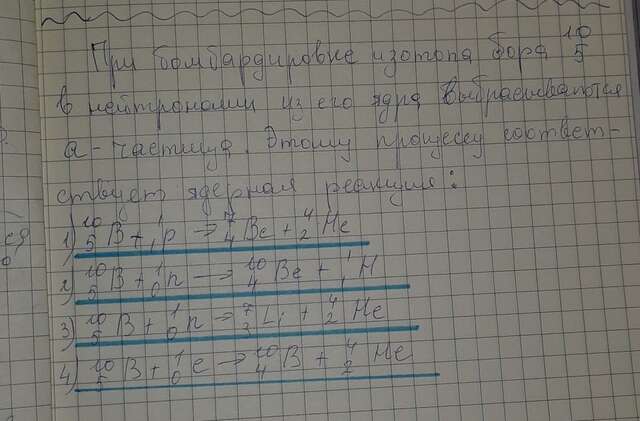 При бомбардировке изотопа бора 10 5
B нейтронами из его ядра выбрасывается
α-частица. Этому процессу соответ-
ствует ядерная реакция:
1) 10 5 B + 1 1 p → 7 4 Be + 4 2 He
2) 10 5 B + 1 0 n → 10 4 Be + 1 1 H
3) 10 5 B + 1 0 n → 7 3 Li + 4 2 He
4) 10 5 B + 1 0 e → 10 4 B + 4 2 He